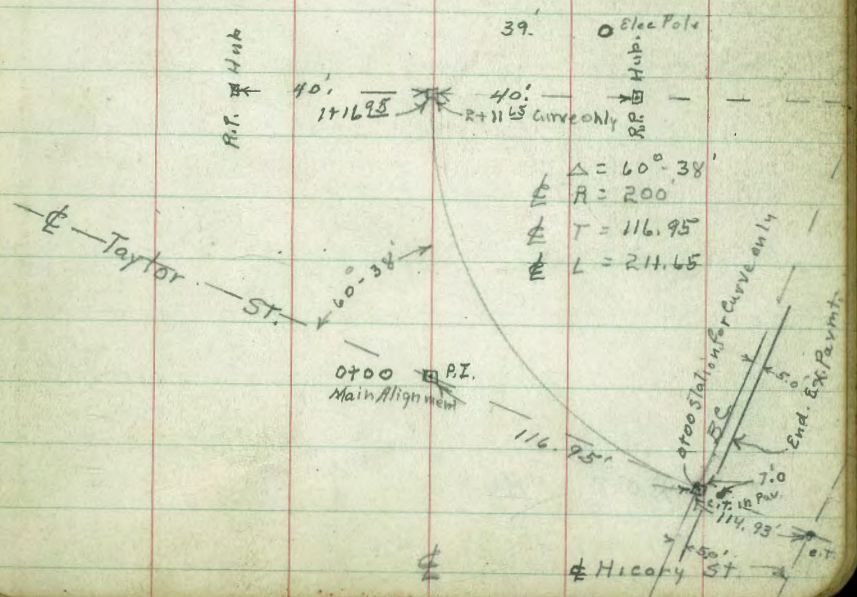 39.'
Elec Pole
R.P. Hub
40'.
40'.
R.P. Hub.
1+16 95
2+11 65 Curve only
Δ = 60°-38'
℄ R = 200'
℄ T = 116.95
℄ L = 211.65
℄ Taylor St.
60°-38'
0+00
P.I.
Main Alignment
116.95'
0+00 Station for Curve only
B.C.
5.0
End. Ex. Pavmt.
7.0
c.T. in Pav.
114.93'
c.T.
50'
℄
℄ Hicory St.